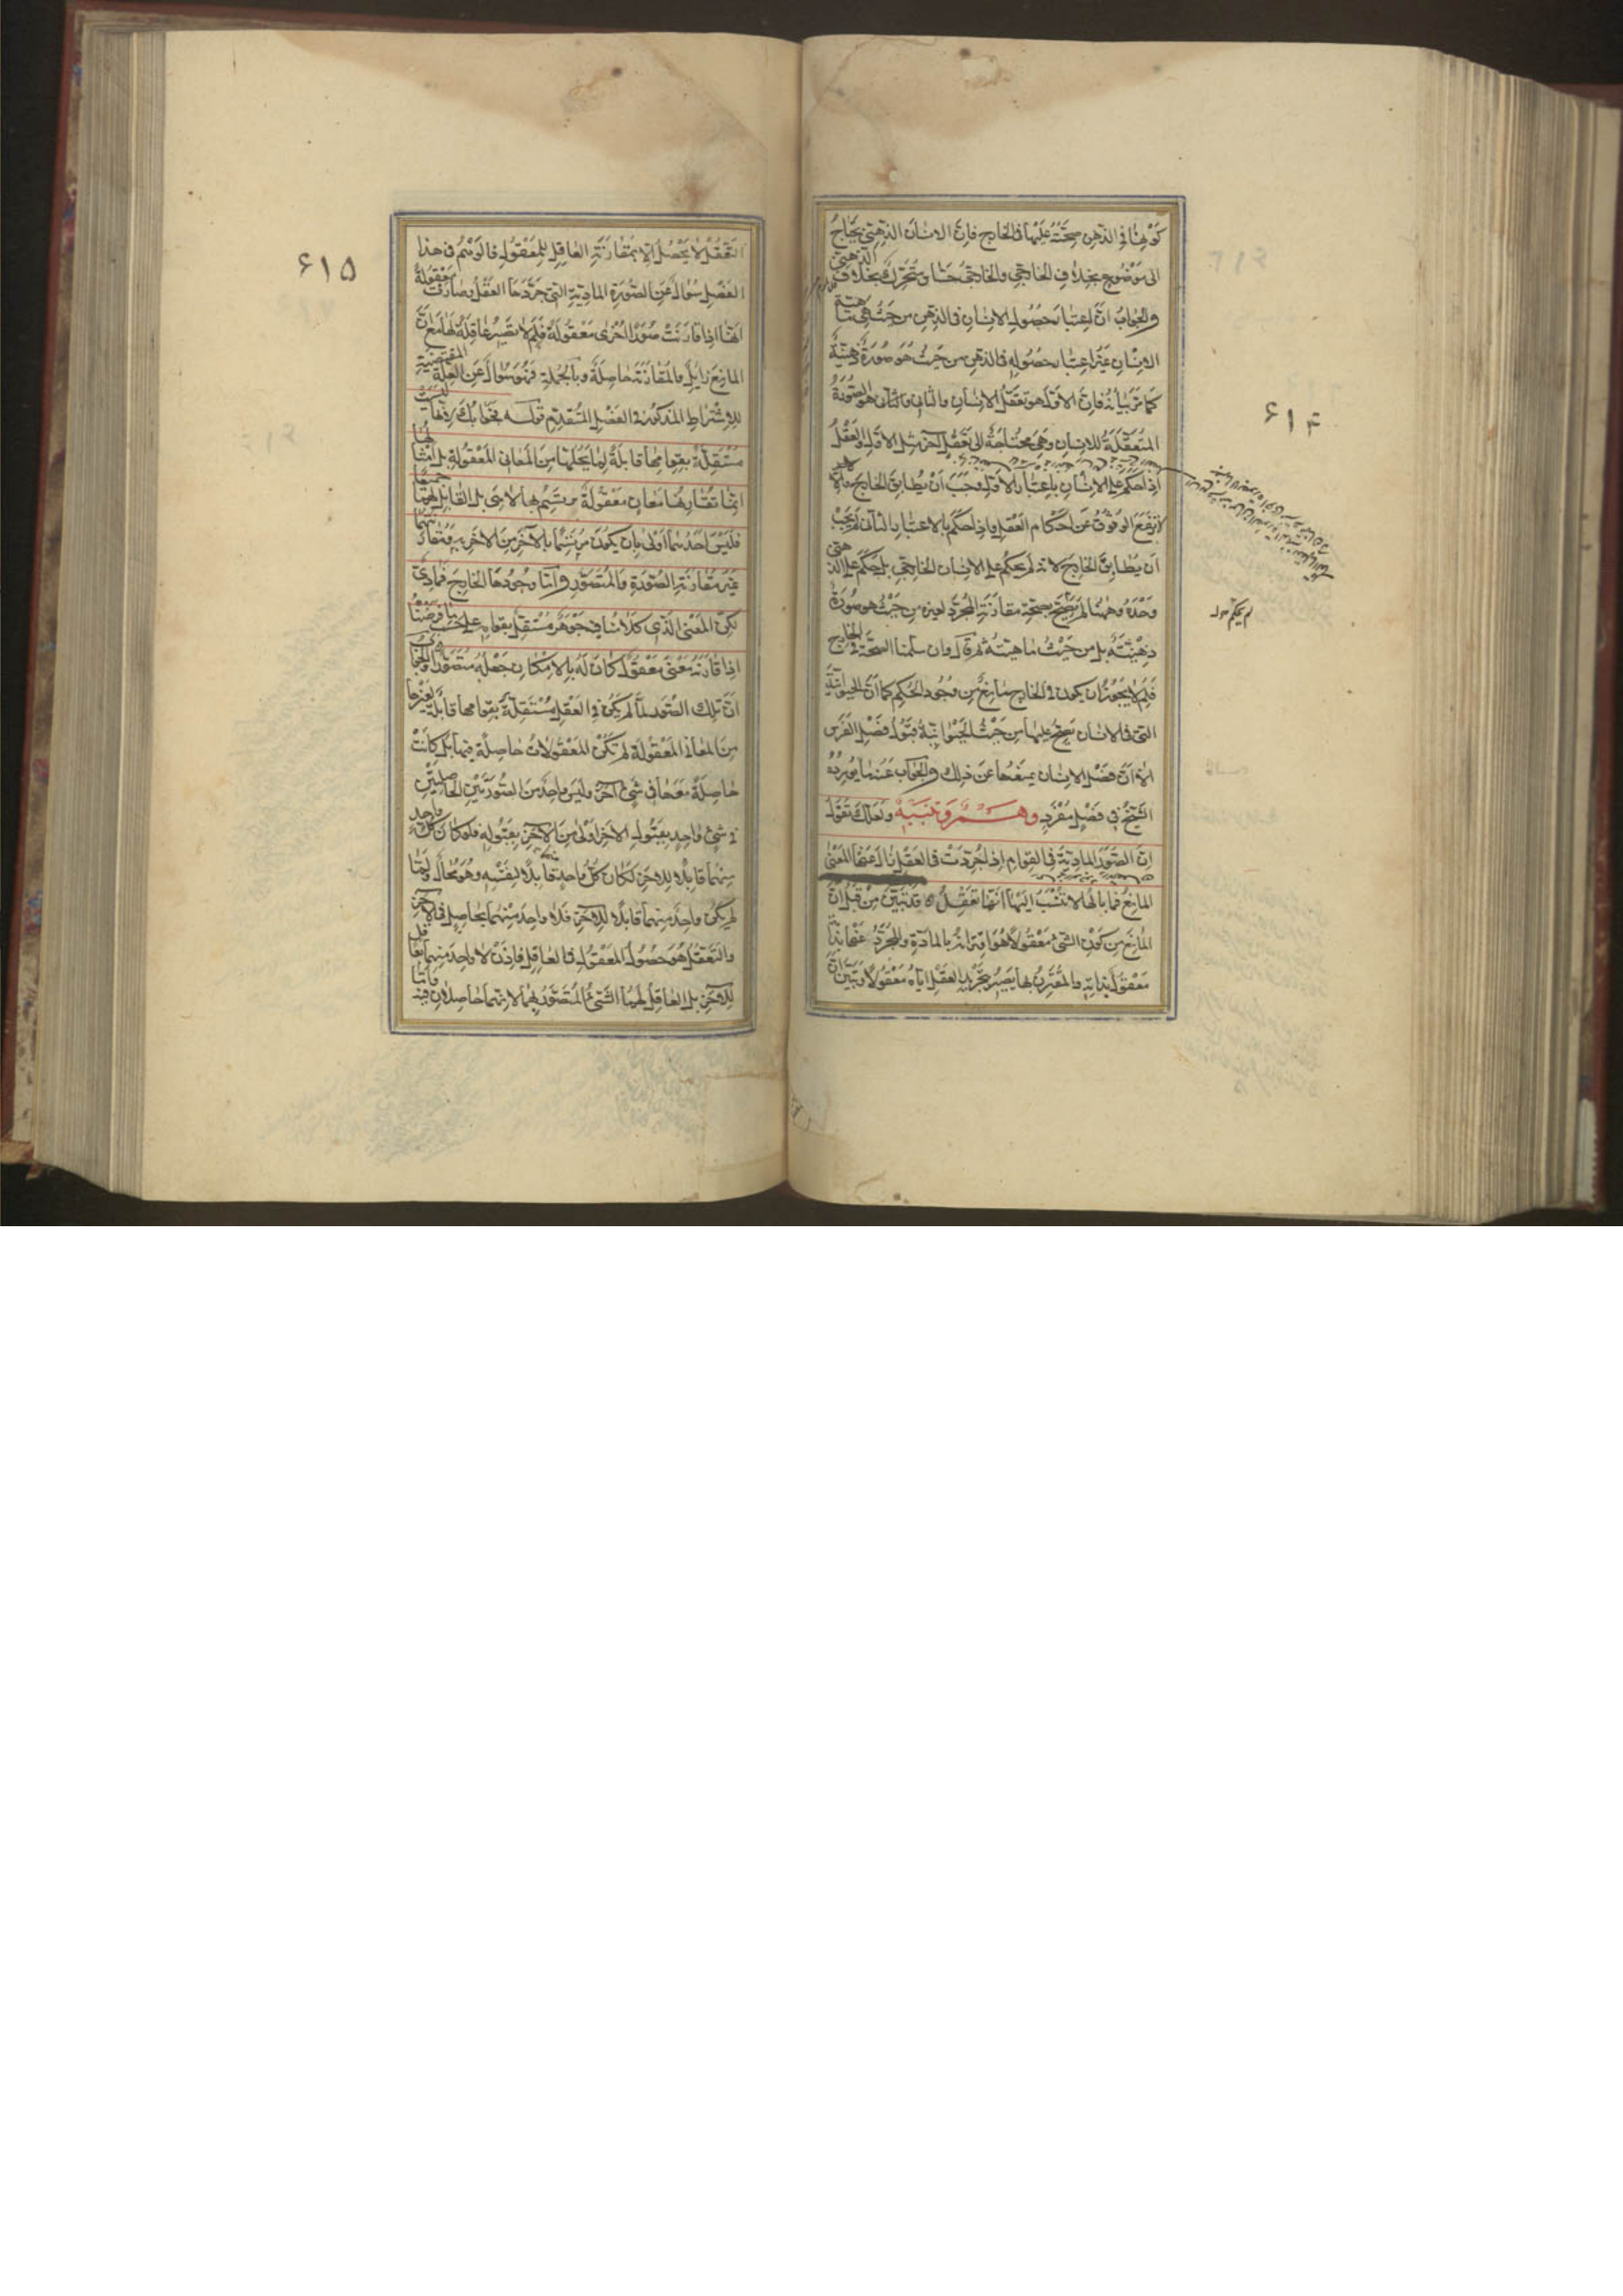 ۶۱۴
كونها فى الذهن صحتّه عليها فى الخارج فان الانسان الذهنى يحتاج
الى موضوع بخلاف الخارجى والخارجى حساس متحرك بخلاف الذهنى
والجواب ان اعتبار حصول الانسان فى الذهن من حيث هى ماهية
الانسان غير اعتبار حصوله فى الذهن من حيث هو صورة ذهنية
كما مر بيانه فان الاول هو تعقل الانسان والثانى هو الصورة
المتعقلة للانسان وهى محتاجة الى تعقل آخر مثل الاول والعقل
اذا حكم على الانسان باعتبار الاول وجب ان يطابق الخارج والا
لارتفع الوثوق عن احكام العقل واذا حكم بالاعتبار الثانى لم يجب
ان يطابق الخارج لانه لم يحكم على الانسان الخارجى بل حكم على الذهنى
وحده وههنا لم نحكم بصحة مقارنة المجرد لغيره من حيث هو صورة
ذهنية بل من حيث ماهيته ثم قال وان سلمنا الصحة فى الخارج
فلم لا يجوز ان يكون فى الخارج مانع من وجود الحكم كما ان الحيوانية
التى فى الانسان تصح عليها من حيث الحيوانية قبول فصل الفرس
الا ان فصل الانسان يمنعها عن ذلك والجواب عنه ما يورده
الشيخ فى فصل مفرد وهم وتنبيه ولعلك تقول
ان الصور المادية فى القوام اذا جردت فى العقل زال عنها المعنى
المانع فما بالها لا تنسب اليها انها تعقل قد تبين من قبل ان
المانع من كون الشئ معقولا هو اقترانه بالمادة والمجرد عنها بذاته
معقول بذاته والمقترن بها يصير بتجريد العقل اياه معقولا وتبين ان
لم يحكم
۶۱۵
التعقل لا يحصل الا بمقارنة العاقل للمعقول فالوهم فى هذا
الفصل سؤال عن الصورة المادية التى جردها العقل فصارت معقولة
انها اذا قارنت صورا اخرى معقولة فلم لا تصير عاقلة لها مع ان
المانع زايل والمقارنة حاصلة وبالجملة فهو سؤال عن العلة المقتضية
للاشتراط المذكور فى الفصل المتقدم قوله فجوابك لانها ليست
مستقلة بقوامها قابلة لما يحلها من المعانى المعقولة بل امثالها
انما تقارنها معان معقولة مرتسم بها لا هى بل القابل لهما جميعا
فليس احدهما اولى بان يكون مرتسما بالآخر من الآخر به ومقارنتهما
غير مقارنة الصورة والمتصور واما وجودها الخارج فمادى
لكن المعنى الذى كلامنا فيه جوهر مستقل بقوامه على حسب ما فرضنا
اذا قارنه معنى معقول كان له بالامكان جعله متصورا والجواب
ان تلك الصور لما لم تكن فى العقل مستقلة بقوامها قابلة لغيرها
من المعانى المعقولة لم تكن المعقولات حاصلة فيها بل كانت
حاصلة معها فى شئ آخر وليس واحد من الصورتين الحاصلتين
فى شئ واحد بقبول الآخر اولى من الآخر بقبوله فلو كان كل واحد
منهما قابلا للآخر لكان كل واحد قابلا لنفسه وهو محال ولما
لم يكن واحد منهما قابلا للآخر فلا واحد منهما بحاصل فى الآخر
والتعقل هو حصول المعقول فى العاقل فاذن لا واحد منهما بعاقل
للآخر بل العاقل لهما الشئ المتصور بهما لانهما حاصلان فيه واما